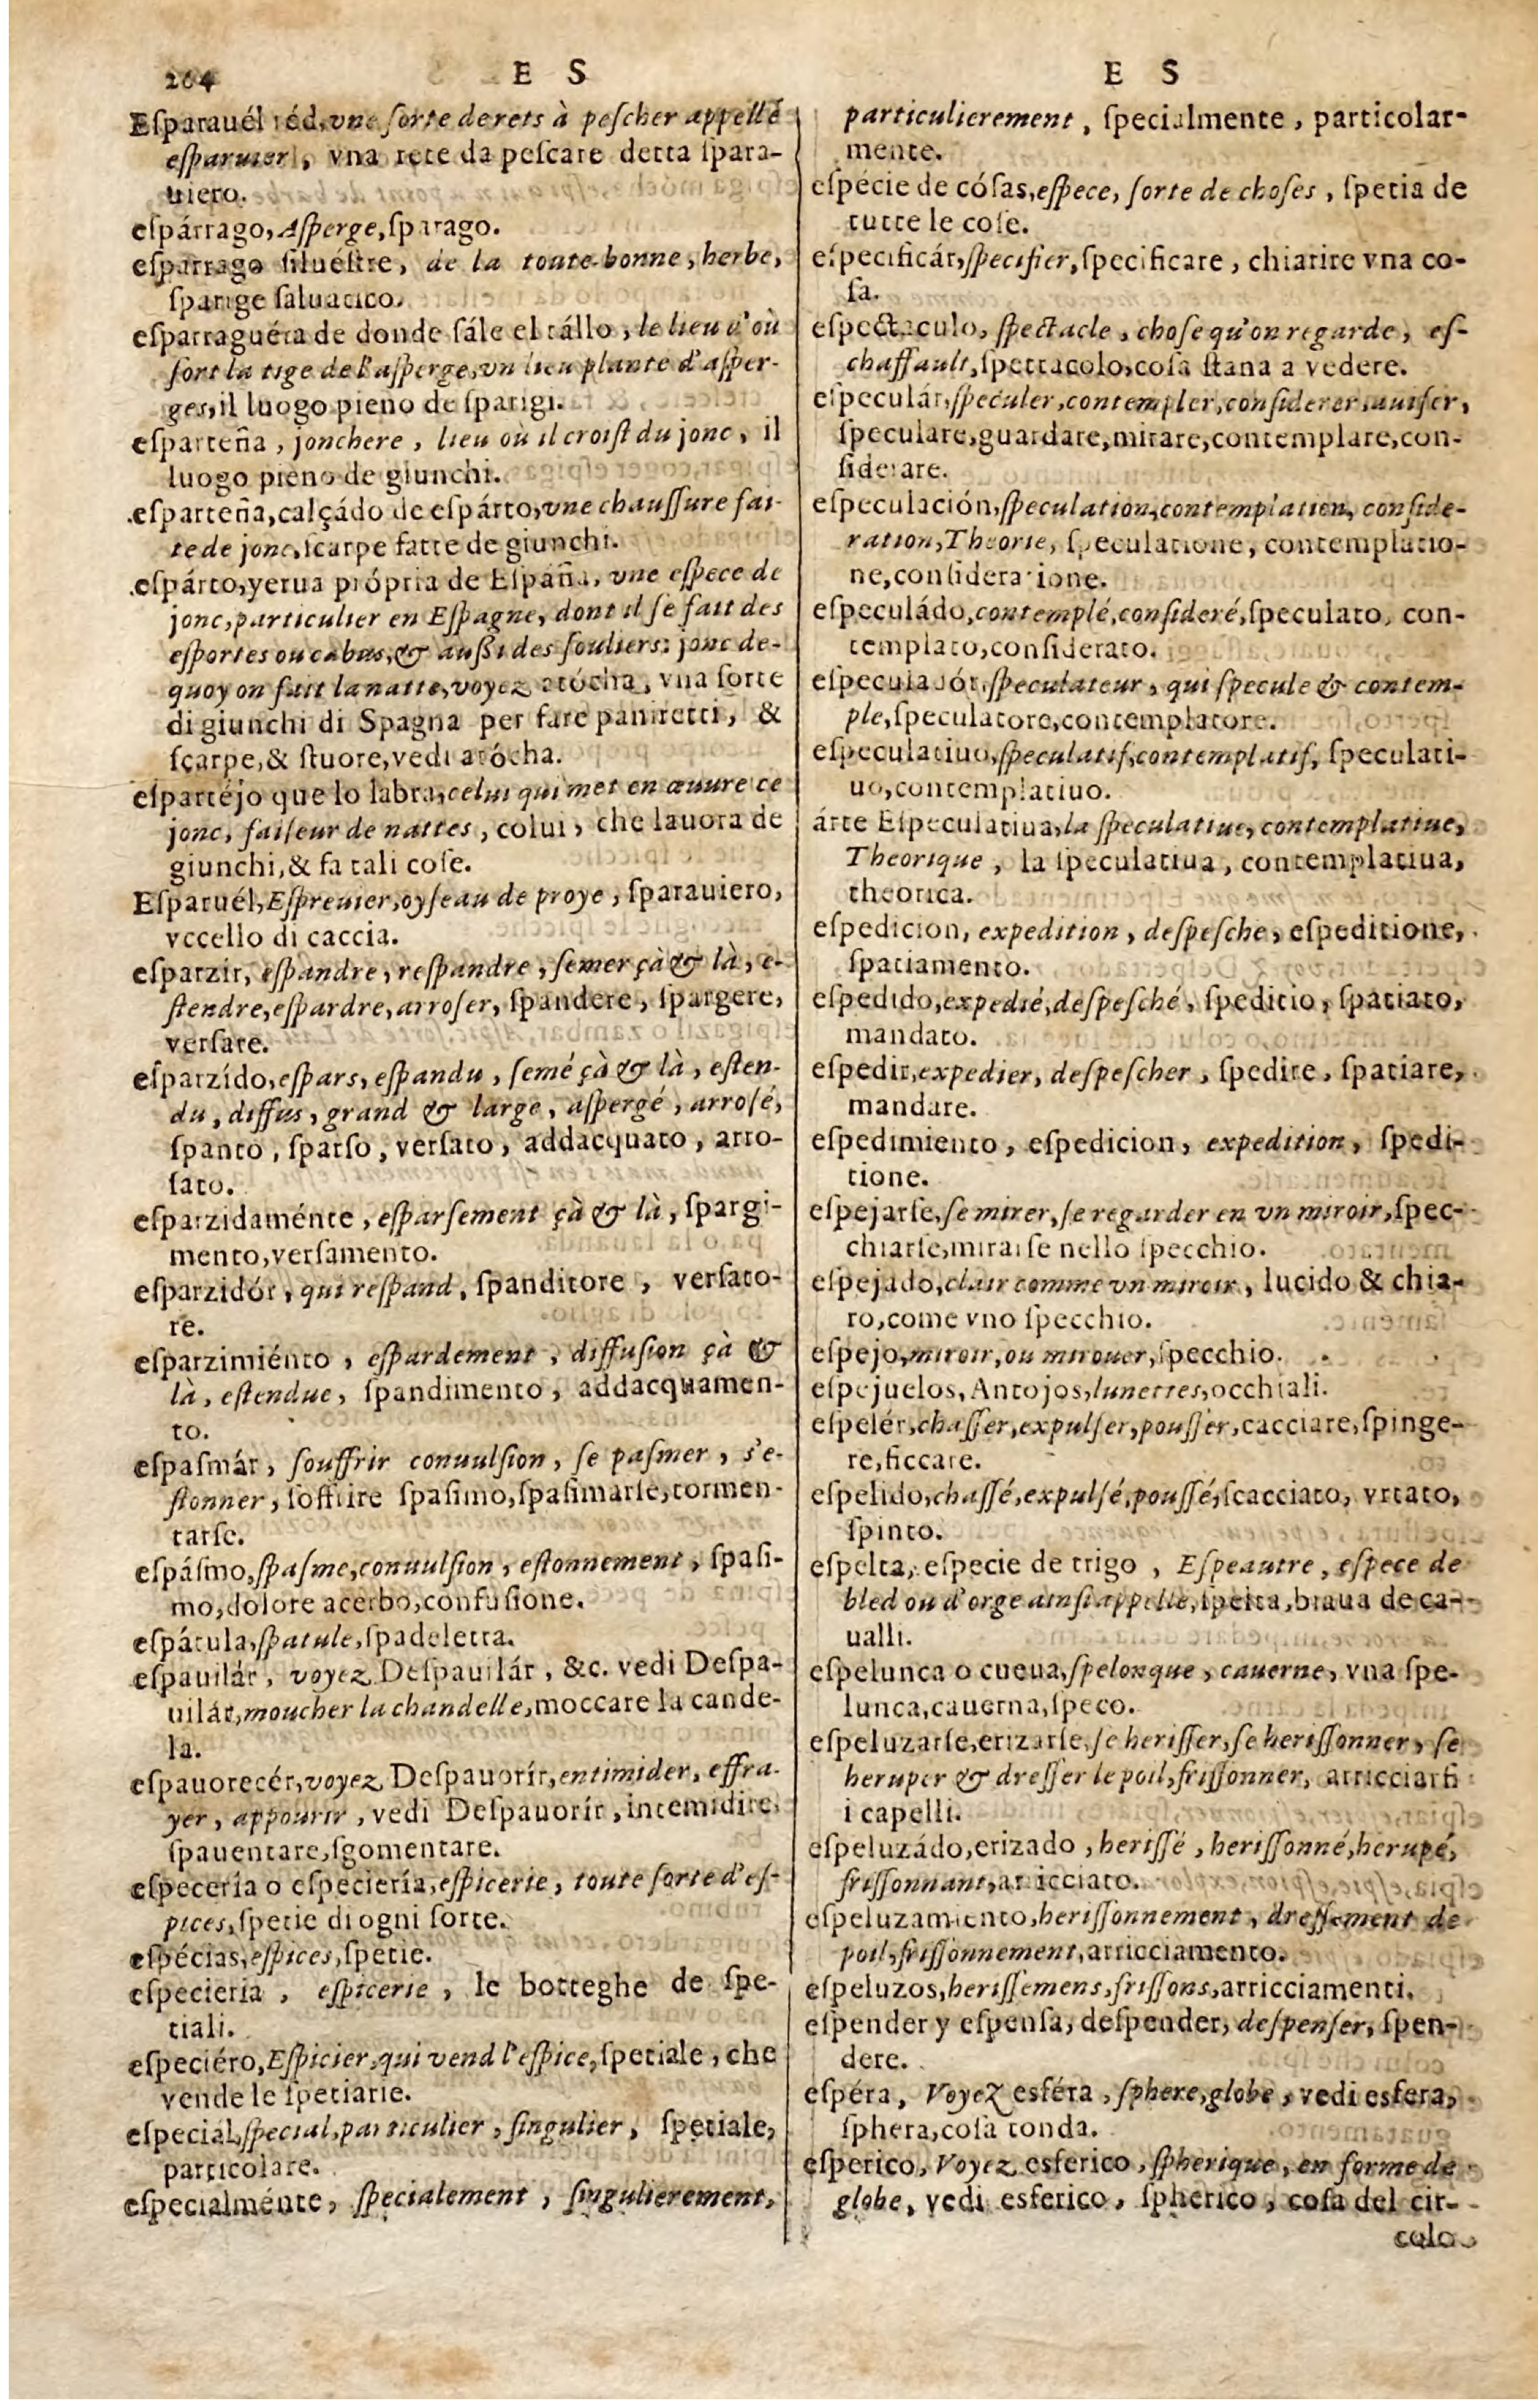 264
E S
E S
Eſparauél réd, vne ſorte de rets à peſcher appellé
eſparuier, vna rete da peſcare detta ſpara-
uiero.
eſpárrago, Aſperge, ſparago.
eſparrago ſiluéſtre, de la toute-bonne, herbe,
ſparige ſaluatico.
eſparraguéra de donde ſále el tállo, le lieu d'où
ſort la tige de l'aſperge, vn lieu plante d'aſper-
ges, il luogo pieno de ſparigi.
eſparteña, jonchere, lieu où il croiſt du jonc, il
luogo pieno de giunchi.
eſparteña, calçádo de eſpárto, vne chauſſure fai-
te de jonc, ſcarpe fatte de giunchi.
eſpárto, yerua própria de Eſpáña, vne eſpece de
jonc, particulier en Eſpagne, dont il ſe fait des
eſportes ou cabas, & außi des ſouliers: jonc de-
quoy on fait la natte, voyez atócha, vna ſorte
di giunchi di Spagna per fare paniretti, &
ſcarpe, & ſtuore, vedi atócha.
eſpartéjo que lo labra, celui qui met en œuure ce
jonc, faiſeur de nattes, colui, che lauora de
giunchi, & fa tali coſe.
Eſparuél, Eſpreuier, oyſeau de proye, ſparauiero,
vccello di caccia.
eſparzir, eſpandre, reſpandre, ſemer çà & là, e-
ſtendre, eſpardre, arroſer, ſpandere, ſpargere,
verſare.
eſparzído, eſpars, eſpandu, ſemé çà & là, eſten-
du, diffus, grand & large, aſpergé, arroſé,
ſpanto, ſparſo, verſato, addacquato, arro-
ſato.
eſparzidaménte, eſparſement çà & là, ſpargi-
mento, verſamento.
eſparzidór, qui reſpand, ſpanditore, verſato-
re.
eſparzimiénto, eſpardement, diffuſion çà &
là, eſtendue, ſpandimento, addacquamen-
to.
eſpaſmár, ſouffrir conuulſion, ſe paſmer, s'e-
ſtonner, ſoffrire ſpaſimo, ſpaſimarſe, tormen-
tarſe.
eſpáſmo, ſpaſme, conuulſion, eſtonnement, ſpaſi-
mo, dolore acerbo, confuſione.
eſpátula, ſpatule, ſpadeletta.
eſpauilár, voyez Deſpauilár, &c. vedi Deſpa-
uilár, moucher la chandelle, moccare la cande-
la.
eſpauorecér, voyez Deſpauorír, entimider, effra-
yer, appourir, vedi Deſpauorír, intemidire,
ſpauentare, ſgomentare.
eſpecería o eſpeciería, eſpicerie, toute ſorte d'eſ-
pices, ſpetie di ogni ſorte.
eſpécias, eſpices, ſpetie.
eſpecieria, eſpicerie, le botteghe de ſpe-
tiali.
eſpeciéro, Eſpicier, qui vend l'eſpice, ſpetiale, che
vende le ſpetiarie.
eſpecial, ſpecial, particulier, ſingulier, ſpetiale,
particolare.
eſpecialménte, ſpecialement, ſingulierement,
particulierement, ſpecialmente, particolar-
mente.
eſpécie de cóſas, eſpece, ſorte de choſes, ſpetia de
tutte le coſe.
eſpecificár, ſpecifier, ſpecificare, chiarire vna co-
ſa.
eſpectaculo, ſpectacle, choſe qu'on regarde, eſ-
chaffault, ſpettacolo, coſa ſtana a vedere.
eſpeculár, ſpeculer, contempler, conſiderer, auiſer,
ſpeculare, guardare, mirare, contemplare, con-
ſiderare.
eſpeculación, ſpeculation, contemplation, conſide-
ration, Theorie, ſpeculatione, contemplatio-
ne, conſideratione.
eſpeculádo, contemplé, conſideré, ſpeculato, con-
templato, conſiderato.
eſpeculadór, ſpeculateur, qui ſpecule & contem-
ple, ſpeculatore, contemplatore.
eſpeculatiuo, ſpeculatif, contemplatif, ſpeculati-
uo, contemplatiuo.
árte Eſpeculatiua, la ſpeculatiue, contemplatiue,
Theorique, la ſpeculatiua, contemplatiua,
theorica.
eſpedicion, expedition, deſpeſche, eſpeditione,
ſpatiamento.
eſpedido, expedié, deſpeſché, ſpeditio, ſpatiato,
mandato.
eſpedir, expedier, deſpeſcher, ſpedire, ſpatiare,
mandare.
eſpedimiento, eſpedicion, expedition, ſpedi-
tione.
eſpejarſe, ſe mirer, ſe regarder en vn miroir, ſpec-
chiarſe, mirarſe nello ſpecchio.
eſpejado, clair comme vn miroir, lucido & chia-
ro, come vno ſpecchio.
eſpejo, miroir, ou mirouer, ſpecchio.
eſpejuelos, Antojos, lunettes, occhiali.
eſpelér, chaſſer, expulſer, pouſſer, cacciare, ſpinge-
re, ficcare.
eſpelido, chaſſé, expulſé, pouſſé, ſcacciato, vrtato,
ſpinto.
eſpelta, eſpecie de trigo, Eſpeautre, eſpece de
bled ou d'orge ainſi appellé, ſpelta, biaua de ca-
ualli.
eſpelunca o cueua, ſpelonque, cauerne, vna ſpe-
lunca, cauerna, ſpeco.
eſpeluzarſe, erizarſe, ſe heriſſer, ſe heriſſonner, ſe
heruper & dreſſer le poil, friſſonner, arricciarſi
i capelli.
eſpeluzádo, erizado, heriſſé, heriſſonné, herupé,
friſſonnant, arricciato.
eſpeluzamiento, heriſſonnement, dreſſement de
poil, friſſonnement, arricciamento.
eſpeluzos, heriſſemens, friſſons, arricciamenti.
eſpender y eſpenſa, deſpender, deſpenſer, ſpen-
dere.
eſpéra, Voyez esféra, ſphere, globe, vedi esfera,
ſphera, coſa tonda.
eſperico, Voyez esferico, ſpherique, en forme de
globe, vedi esferico, ſpherico, coſa del cir-
colo